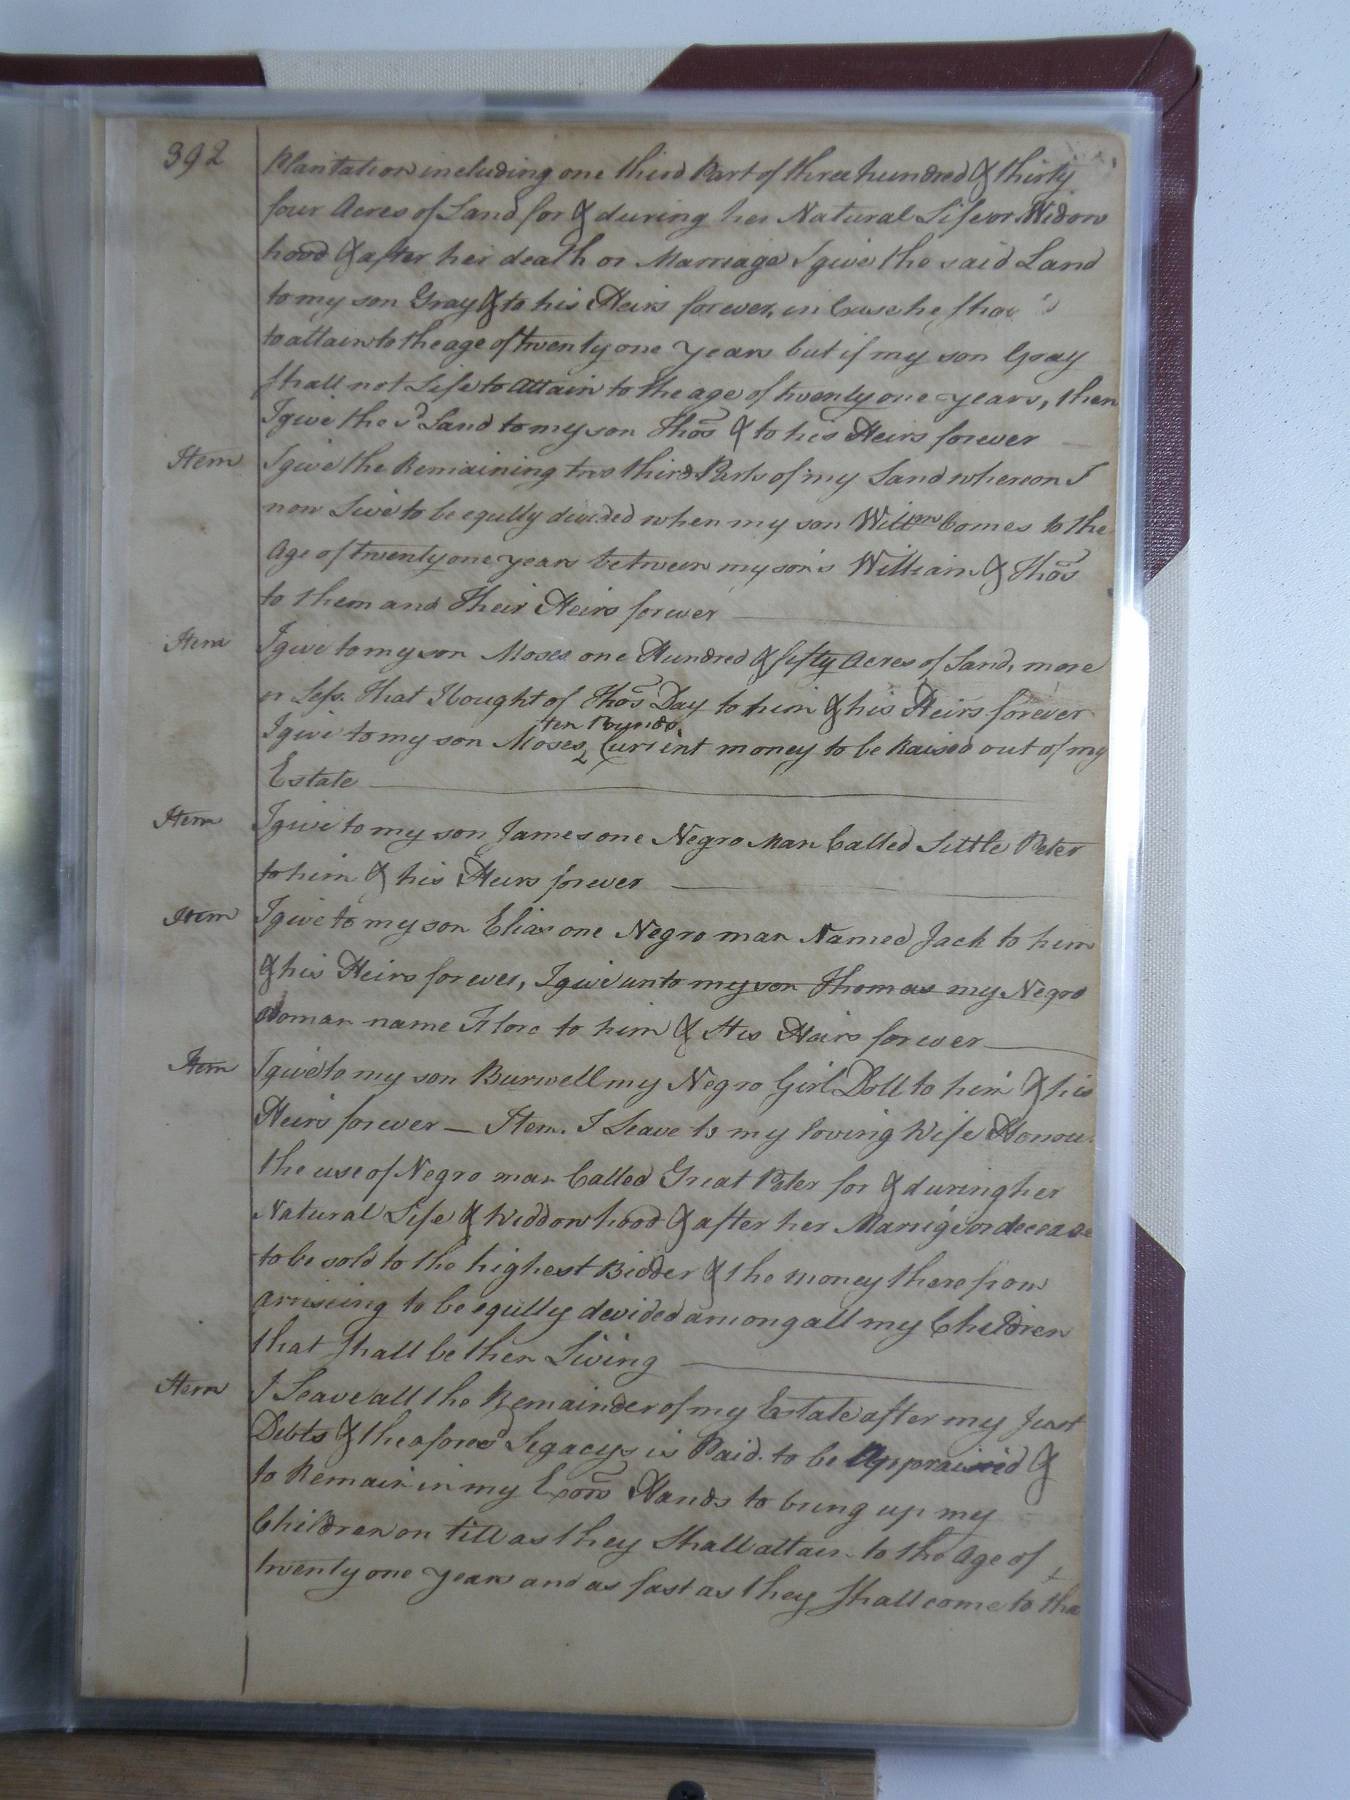 392
Plantation including one third Part of three hundred & thirty
four Acres of Land for & during her Natural Life or Widow
hood & after her death or Marriage I give the said Land
to my son Gray & to his Heirs forever, in Case he
to attain to the age of twenty one years but if my son Gray
shall not Life to Attain to the age of twenty one years, then
I give the sd Land to my son Thos & to his Heirs forever
Item I give the Remaining two third Parts of my Land whereon I
now Live to be eqully divided when my son Willm Comes to the
Age of twenty one years between my son's William & Thos
to them and Their Heirs forever
Item I give to my son Moses one Hundred & fifty Acres of Land, more
or Less. That I bought of Thos Day to him & his Heirs forever
ten Pounds
I give to my son Moses Current money to be Raised out of my
Estate
Item I give to my son James one Negro Man Called Little Peter
to him & his Heirs forever
Item I give to my son Elias one Negro man Named Jack to him
& his Heirs forever, I give unto my son Thomas my Negro
Woman name Flore to him & His Heirs forever
Item I give to my son Burwell my Negro Girl Doll to him & his
Heirs forever — Item. I Leave to my loving Wife Honour
the use of Negro man Called Great Peter for & during her
Natural Life & Widdowhood & after her or decease
to be sold to the highest Bidder & the money there from
arriseing to be eqully devided among all my Children
that shall be then Living
Item I Leave all the Remainder of my Estate after my Just
Debts & the afores'd Legacys is Paid. to be Appraised &
to Remain in my Exors Hands to bring up my
Children on till as they Shall attain to the Age of
twenty one years and as fast as they shall come to tha